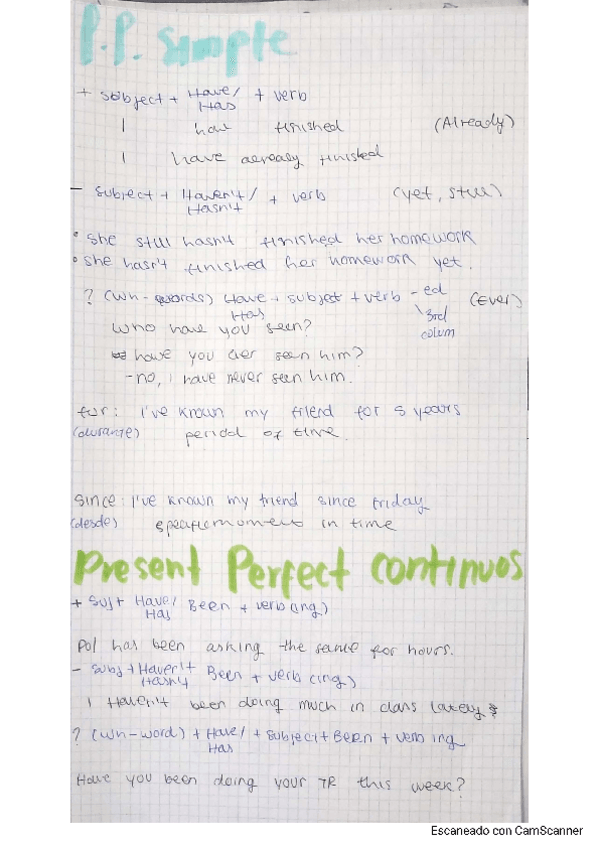 P.P. Simple
+ Subject + Have/ + verb
Has
I have finished (Already)
I have already finished
- Subject + Haven't/ + verb (yet, still)
Hasn't
• She still hasn't finished her homework
• She hasn't finished her homework yet.
? (wh-words) Have + subject + verb -ed (Ever)
Has 3rd
Who have you seen? colum
have you ever seen him?
- no, i have never seen him.
for: i've known my friend for 5 years
(durante) period of time.
Since: i've known my friend since friday
(desde) specific moment in time
Present Perfect continuos
+ Suj + Have/ Been + verb (ing)
Has
Pol has been asking the same for hours.
- Subj + Haven't + Been + verb (ing)
Hasn't
I Haven't been doing much in class lately
? (wh-word) + Have/ + subject + Been + verb ing
Has
Have you been doing your TR this week?
Escaneado con CamScanner